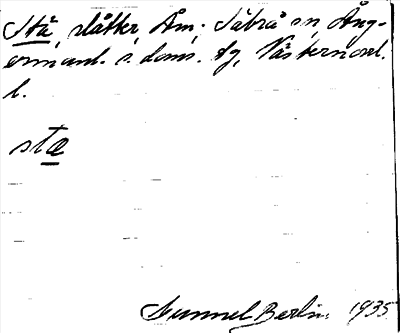 Stå, slåtter, Åm; Säbrå sn, Ång-
ermanl. s. doms. fg, Västernorrl.
l.
stæ
Gunnel Berlin. 1935